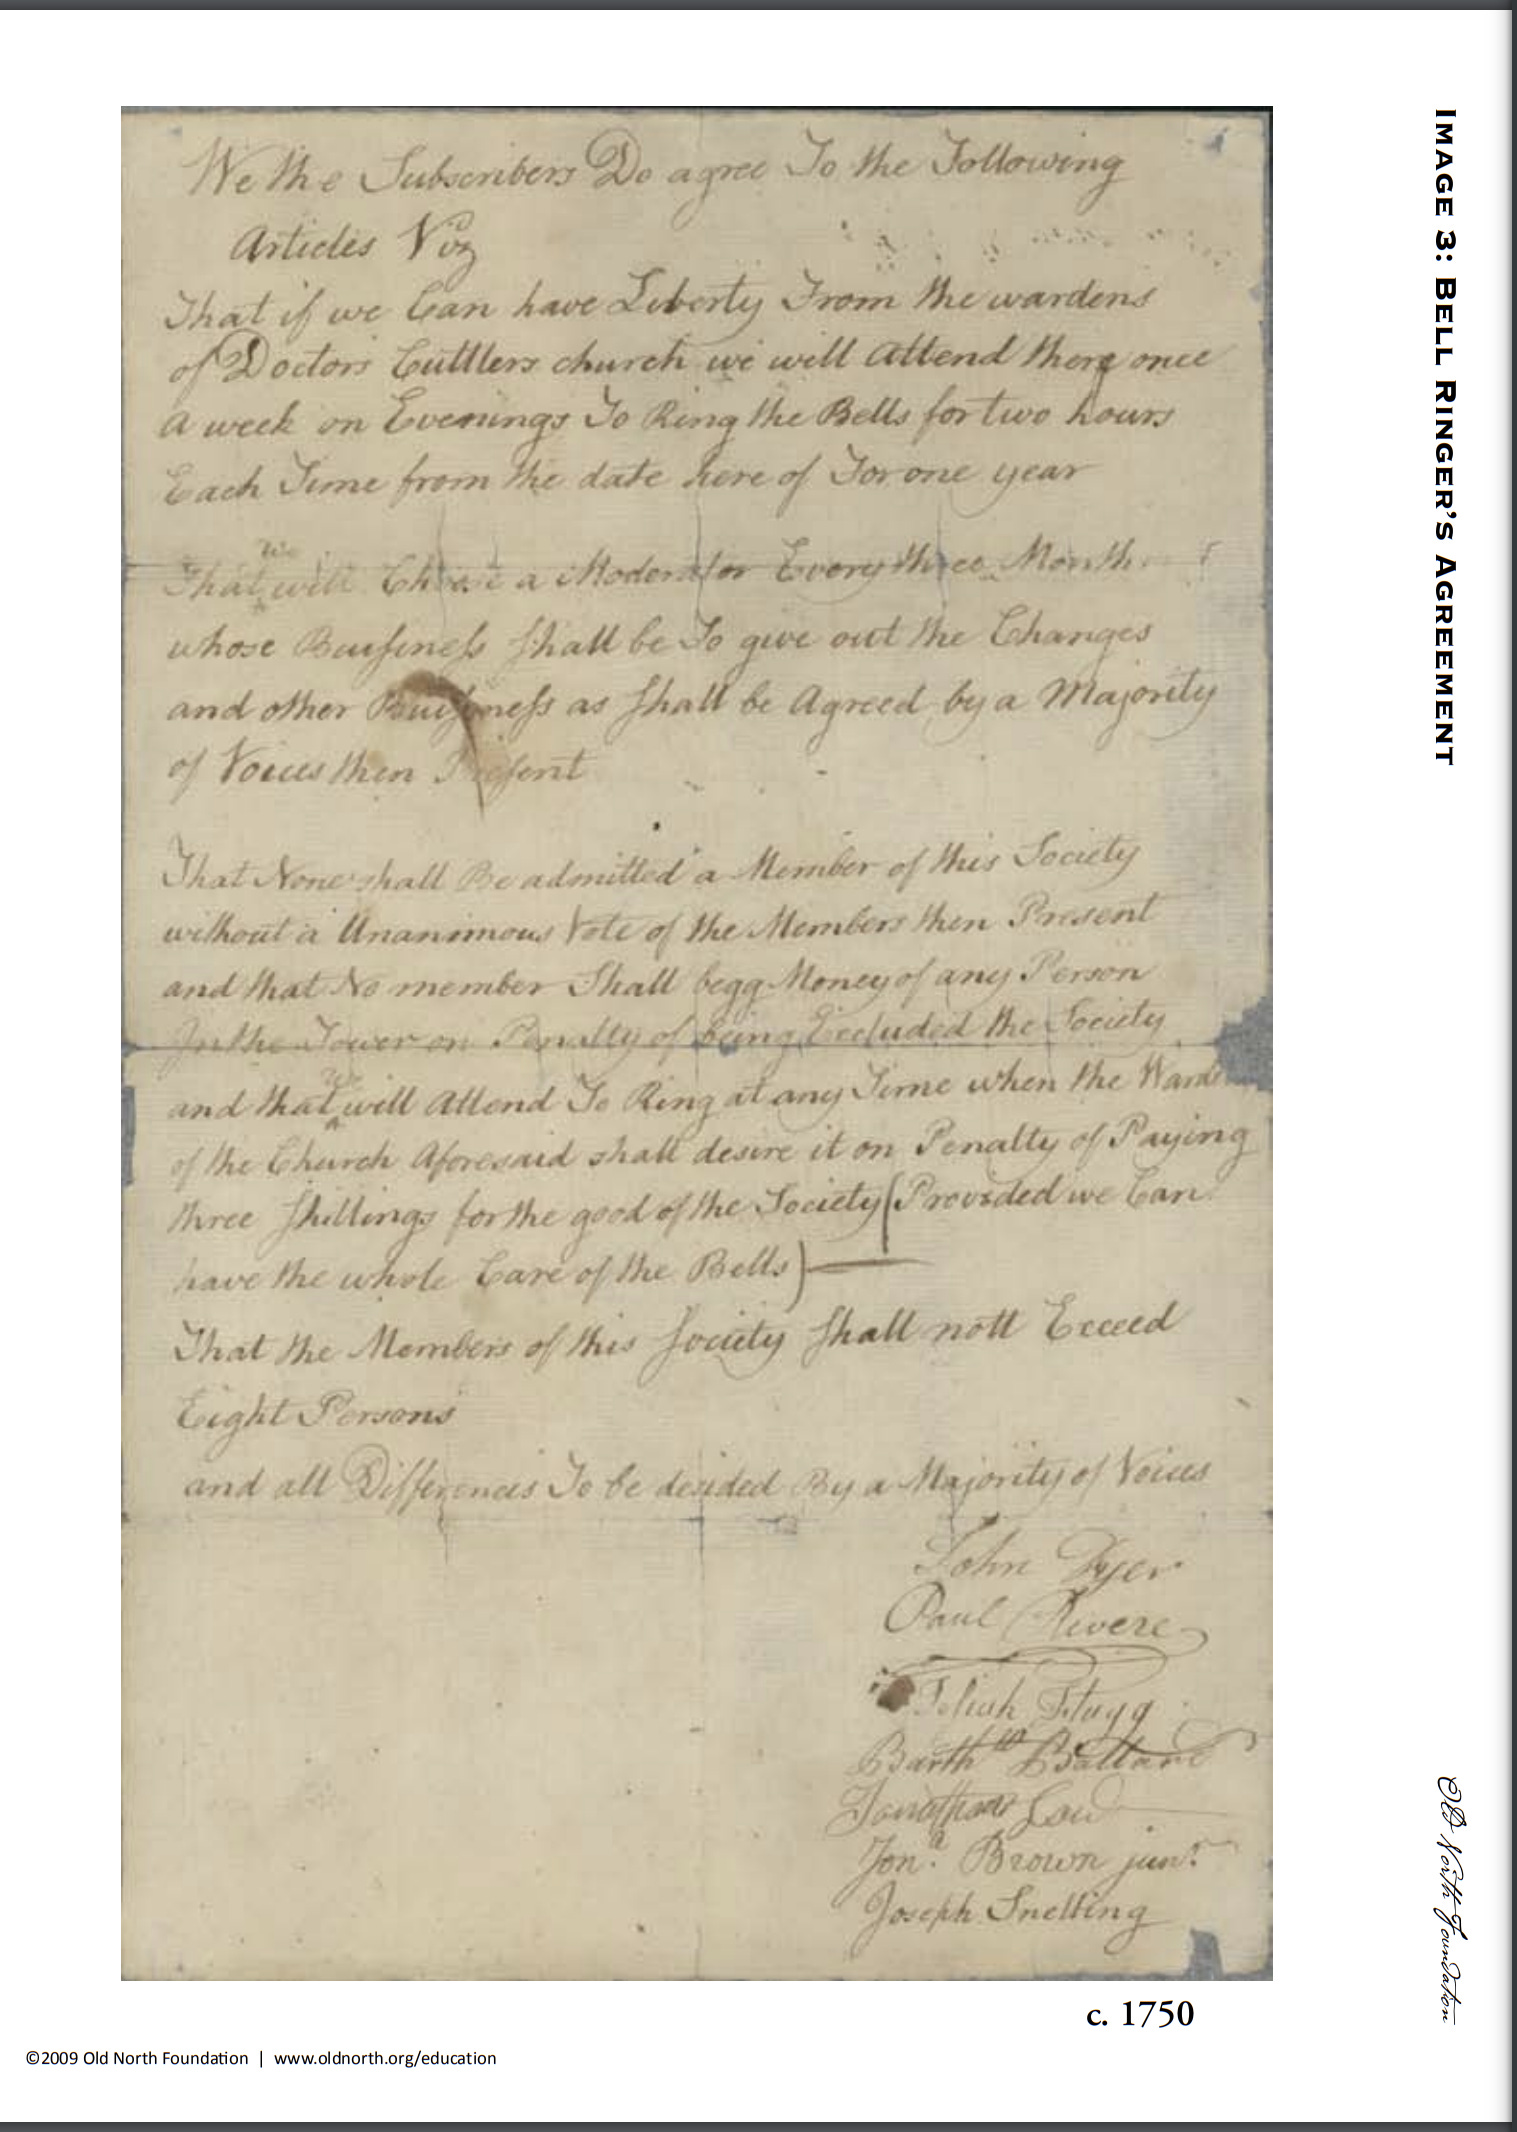 We the Subscribers Do agree To the Following
Articles Viz
That if we Can have Liberty From the wardens
of Doctors Cuttlers church we will Attend there once
a week on Evenings To Ring the Bells for two hours
Each Time from the date here of For one year
we
That will Choose a Moderator Every three Months
whose Buisiness shall be To give out the Changes
and other Buisiness as shall be Agreed by a Majority
of Voices then Present
That None shall Be admitted a Member of this Society
without a Unanimous Vote of the Members then Present
and that No member Shall begg Money of any Person
In the Tower on Penalty of Being Excluded the Society
we
and that will Attend To Ring at any Time when the Ward
of the Church Aforesaid shall desire it on Penalty of Paying
three shillings for the good of the Society (Provided we Can
have the whole Care of the Bells)
That the Members of this Society shall nott Exceed
Eight Persons
and all Differences To be desided By a Majority of Voices
John Dyer
Paul Revere
Josiah Flagg
Barthw Ballard
Jonathan Law
Jona. Brown junr
Joseph Snelling
IMAGE 3: BELL RINGER'S AGREEMENT
Old North Foundation
c. 1750
©2009 Old North Foundation | www.oldnorth.org/education